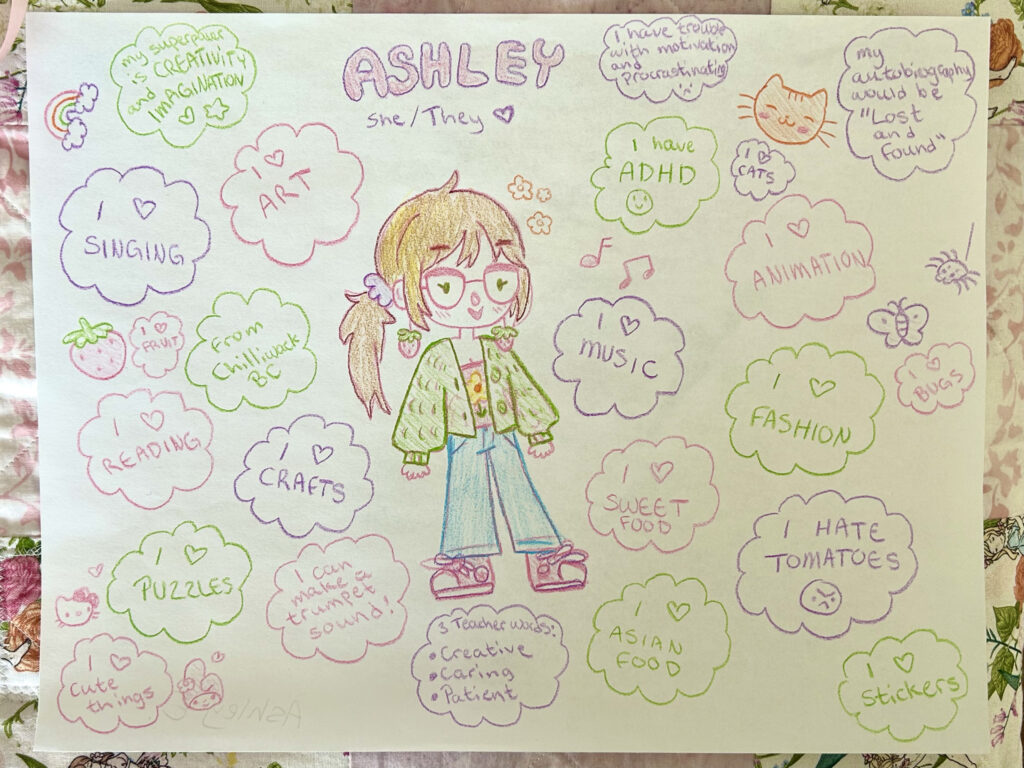 my superpower
is CREATIVITY
and
IMAGINATION
ASHLEY
She/They
I have trouble
with motivation
and
procrastinating
my
autobiography
would be
"Lost
and
found"
I
ART
I have
ADHD
I
CATS
I
SINGING
I
ANIMATION
I
FRUIT
From
Chilliwack
BC
I
MUSIC
I
BUGS
I
READING
I
CRAFTS
I
FASHION
I
SWEET
FOOD
I HATE
TOMATOES
I
PUZZLES
I can
make a
trumpet
sound!
3 Teacher words:
•Creative
•Caring
•Patient
I
ASIAN
FOOD
I
cute
things
I
Stickers